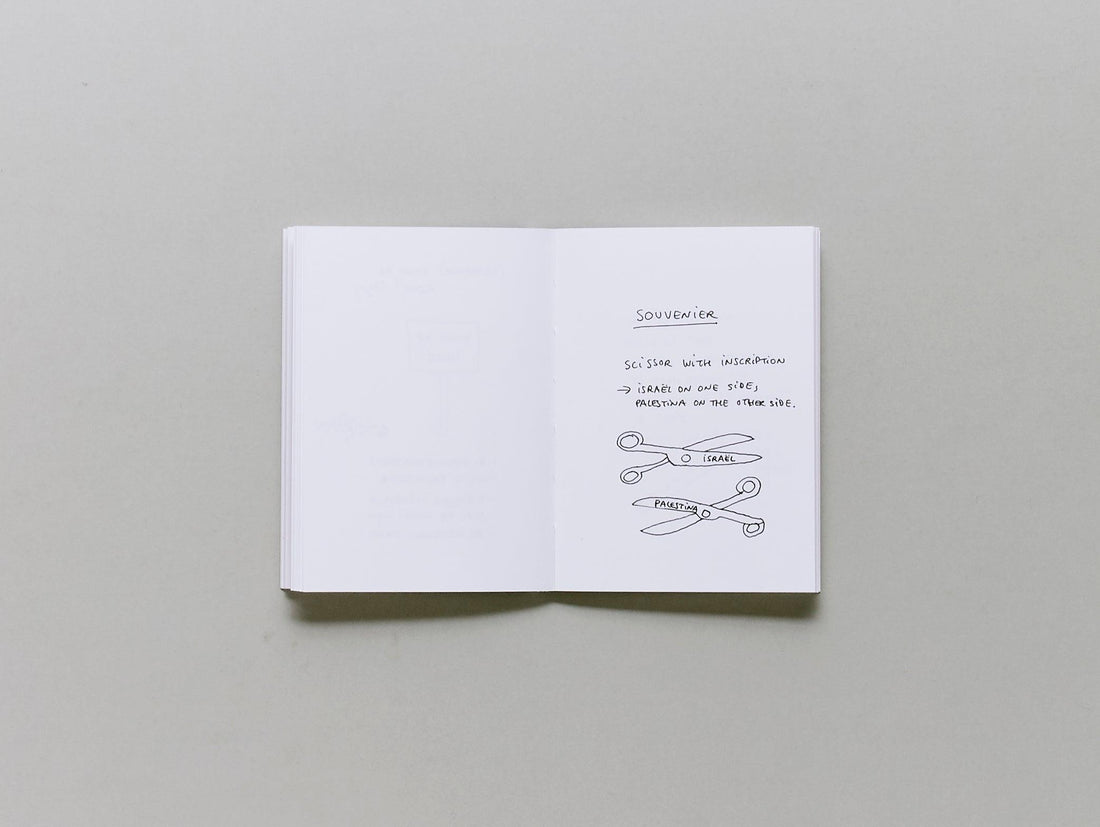 SOUVENIER
SCISSOR WITH INSCRIPTION
→ ISRAËL ON ONE SIDE,
PALESTINA ON THE OTHER SIDE.
ISRAËL
PALESTINA